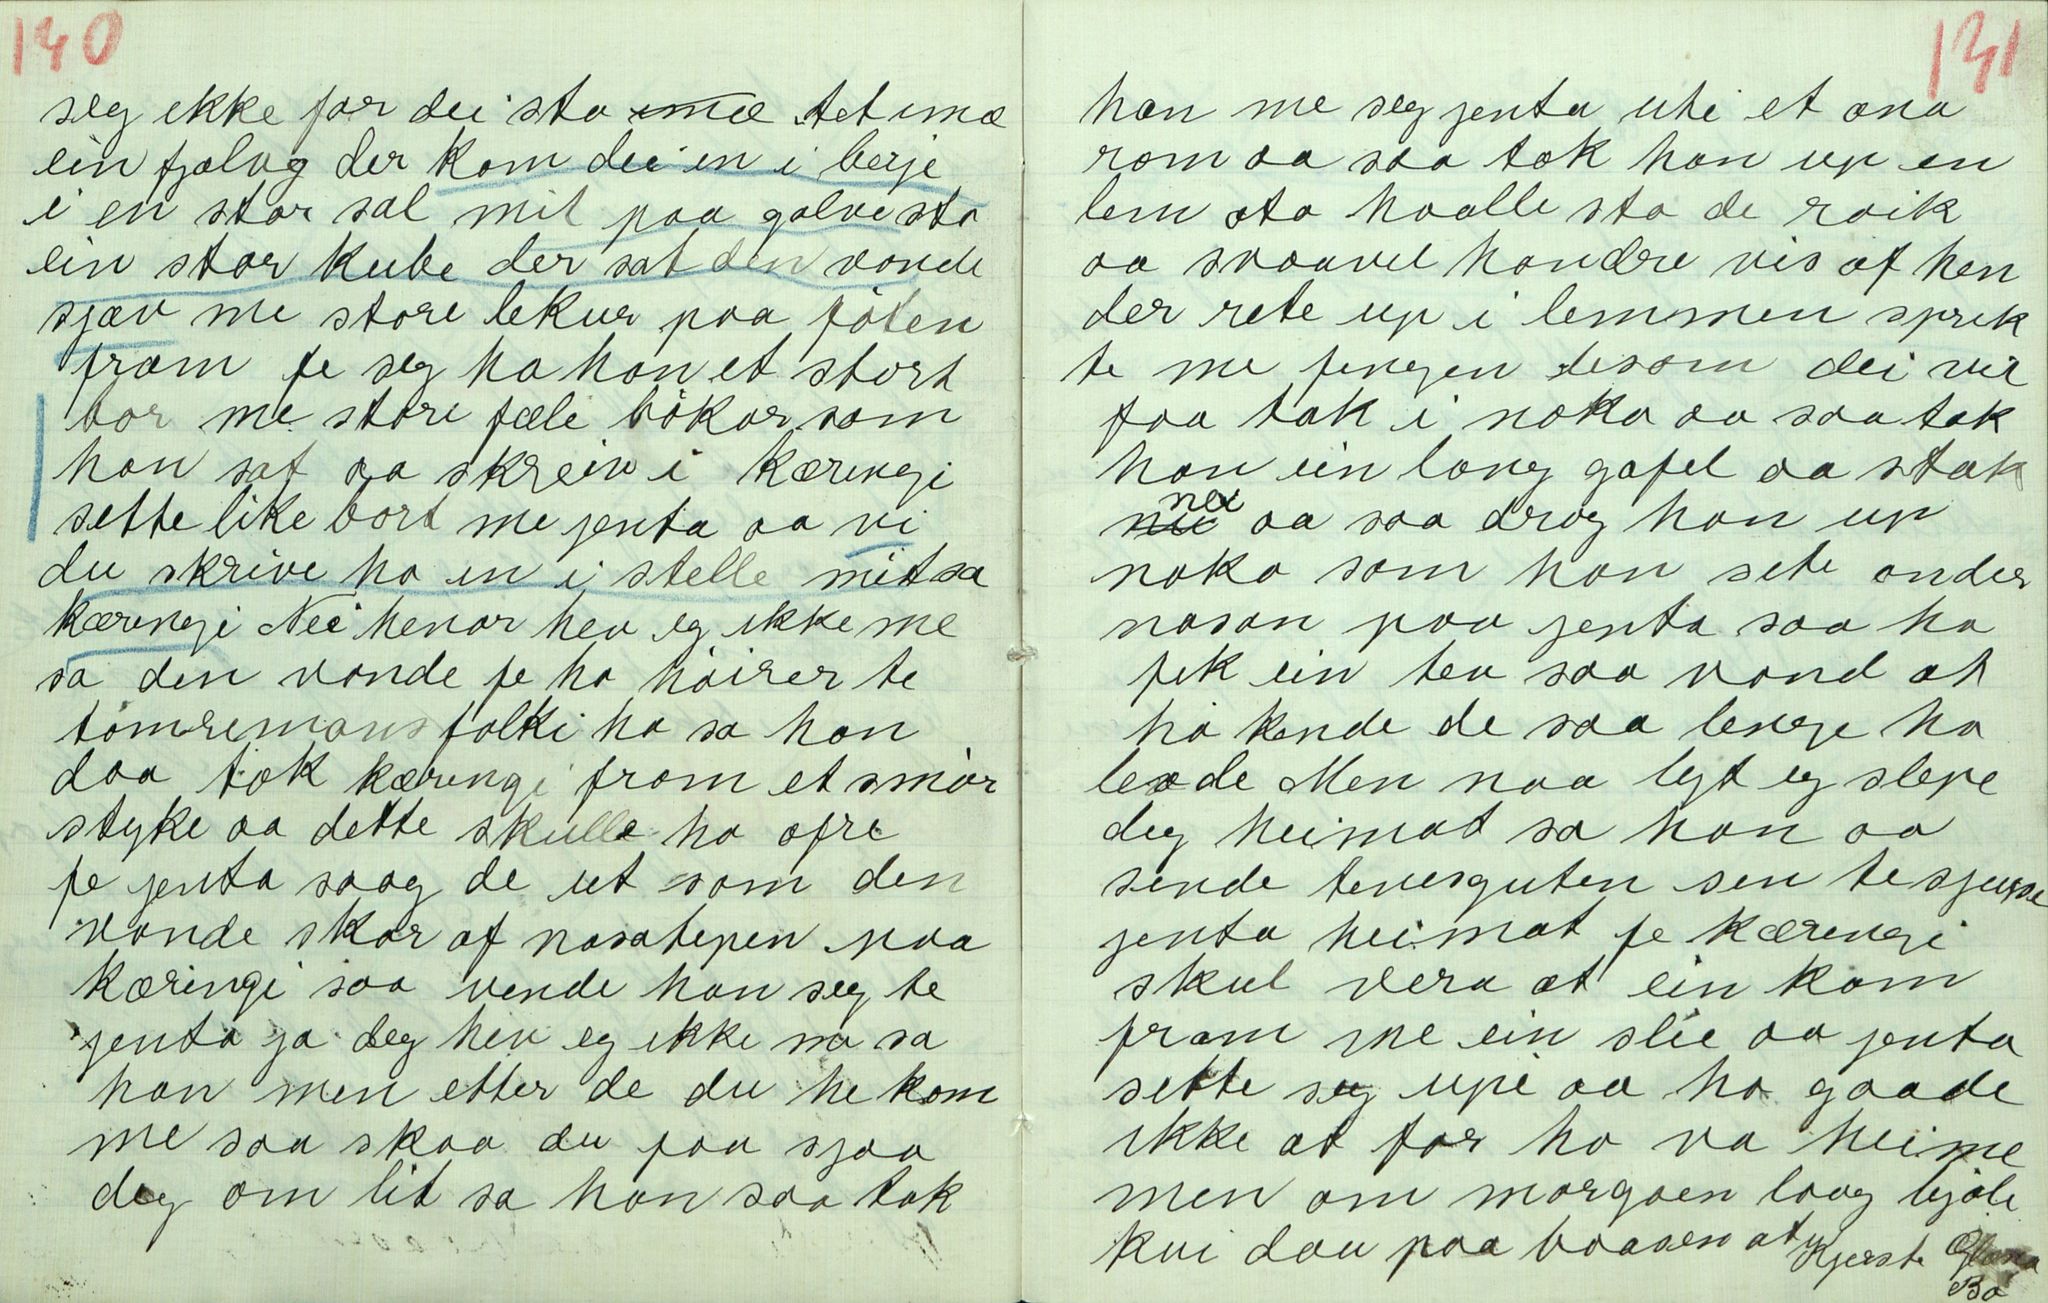 140
seg ikke før dei sto imæ tet imæ
ein fjølvg der kom dei in i berje
i en stor sal mit paa golve sto
ein stor kube der sat den vonde
sjæv me store lekur paa föten
fram fe seg ha han et stort
bor me store fæle bökar som
han sat aa skreiv i kæringi
sette like bort me jenta aa vi
du skrive ho in i stelle mit sa
kæringi Nei henar hev eg ikke me
sa den vonde fe ho höirer te
tömremans folki ho sa han
daa tok kæringi fram et smör
styke aa dette skulle ho ofre
fe jenta saag de ut som den
vonde skar af nasatepen paa
kæringi saa vende han seg te
jenta ja deg hev eg ikke no sa
han men etter de du he kom
me saa skaa du faa sjaa
deg om lit sa han saa tok
131
han me seg jenta uti et ana
rom aa saa tok han up en
lem sto haalle sto de roik
aa svaavel hondre vis af hen
der rete up i lemmen sprik
te me fengen desom dei vil
faa tak i noko aa saa tok
han ein lang gafel aa stak
ne
aa saa drog han up
noko som han sete onder
nosan paa jenta saa ho
fek ein tev saa vond at
hö kende de saa lenge ho
levde Men naa lyt eg slepe
deg heimat sa han aa
sende tenesguten sen te sjusse
jenta heimat fe kæringi
skul vera at ein kom
fram me ein slie aa jenta
sette seg upi aa ho gaade
ikke at før ho va heime
men om morgoen laag bjøle
kui dau paa baasen
Kjerste
Bø